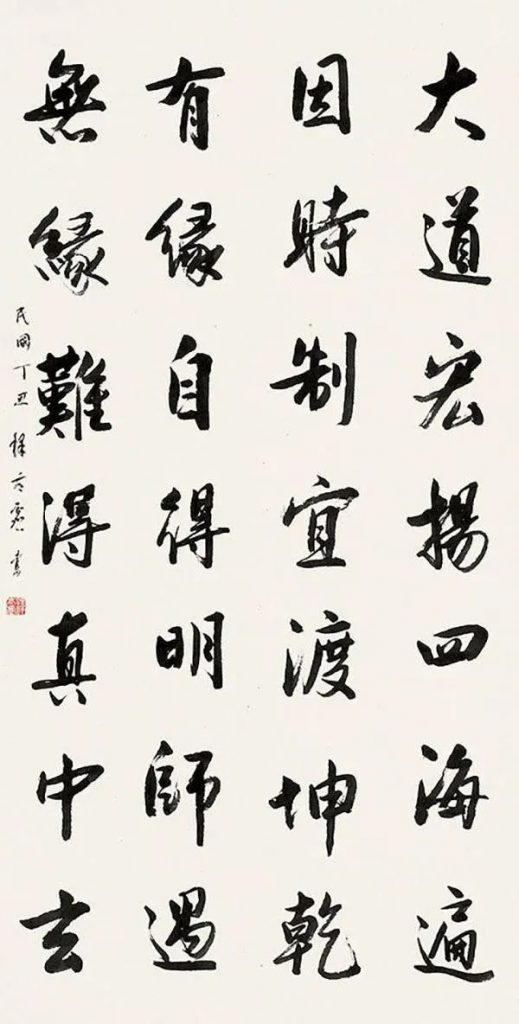 大道宏揚四海遍
因時制宜渡坤乾
有緣自得明師遇
無緣難得真中玄
民國丁丑 釋